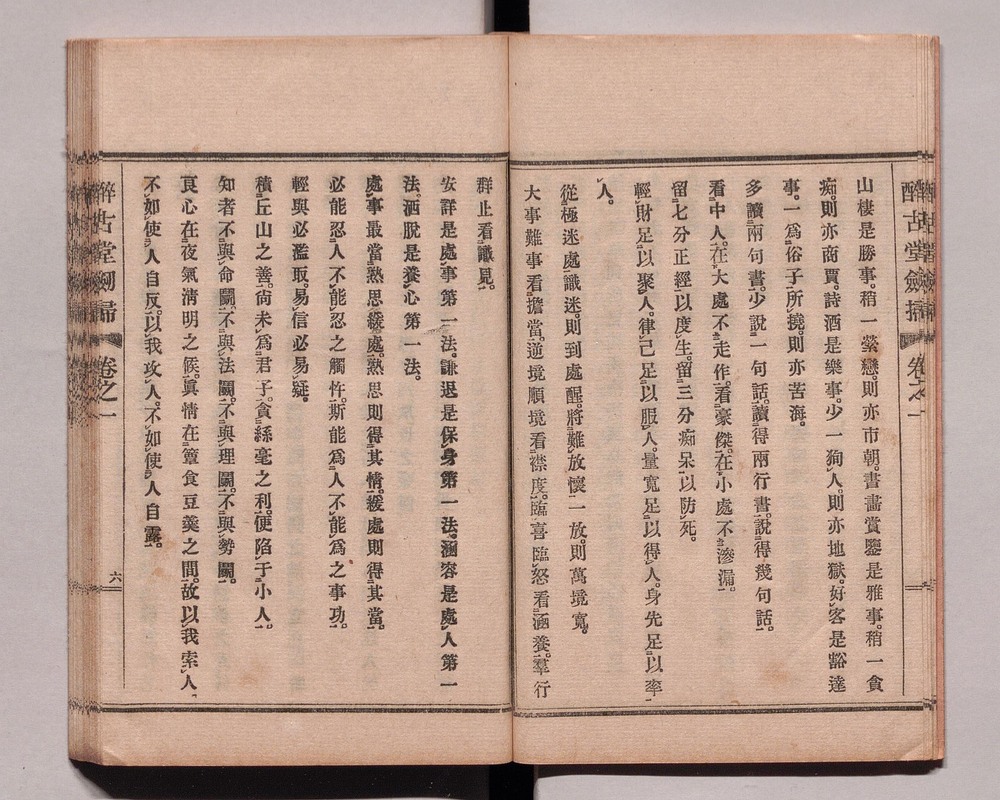 醉古堂劍掃 卷之一
山棲是勝事。稍一縈戀。則亦市朝。書畫賞鑒是雅事。稍一貪
痴。則亦商賈。詩酒是樂事。少一狥人。則亦地獄。好客是豁達
事。一爲俗子所撓。則亦苦海。
多讀兩句書。少說一句話。讀得兩行書。說得幾句話。
看中人。在大處不走作。看豪傑。在小處不滲漏。
留七分正經以度生。留三分痴呆以防死。
輕財足以聚人。律己足以服人。量寬足以得人。身先足以率
人。
從極迷處識迷。則到處醒。將難放懷一放。則萬境寬。
大事難事看擔當。逆境順境看襟度。臨喜臨怒看涵養。羣行
群止看識見。
安詳是處事第一法。謙退是保身第一法。涵容是處人第一
法。洒脫是養心第一法。
處事最當熟思緩處。熟思則得其情。緩處則得其當。
必能忍人不能忍之觸忤。斯能爲人不能爲之事功。
輕與必濫取。易信必易疑。
積丘山之善。尙未爲君子。貪絲毫之利。便陷于小人。
知者不與命鬬。不與法鬬。不與理鬬。不與勢鬬。
良心在夜氣淸明之候。眞情在簞食豆羹之間。故以我索人。
不如使人自反。以我攻人。不如使人自露。
醉古堂劍掃 卷之一 六